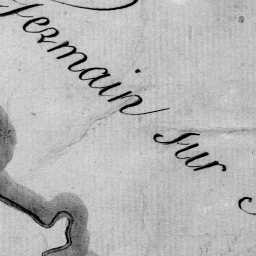 Germain sur